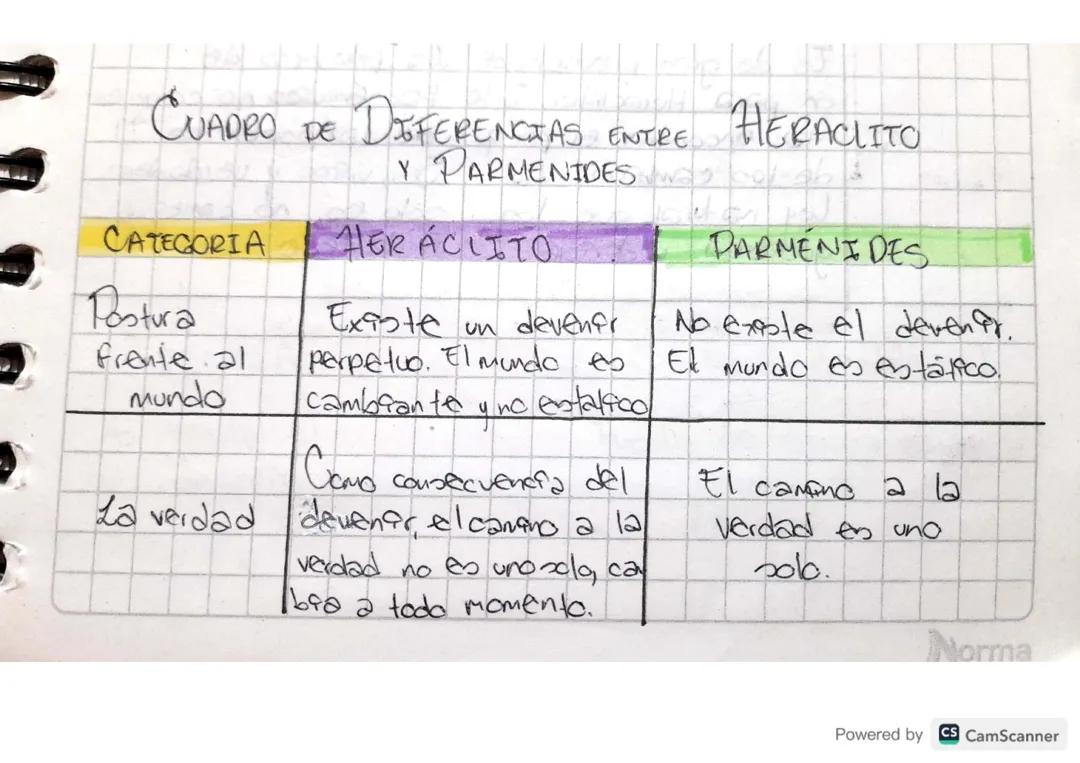 CUADRO DE DIFERENCIAS ENTRE HERACLITO
Y PARMENIDES
CATEGORIA
HERÁCLITO
PARMÉNIDES
Postura
frente al
mundo
Existe un devenir
perpetuo. El mundo es
cambiante y no estático
No existe el devenir.
El mundo es estático.
La verdad
Como consecuencia del
devenir, el camino a la
verdad no es uno solo, cam
bia a todo momento.
El camino a la
verdad es uno
solo.
Norma
Powered by CS CamScanner